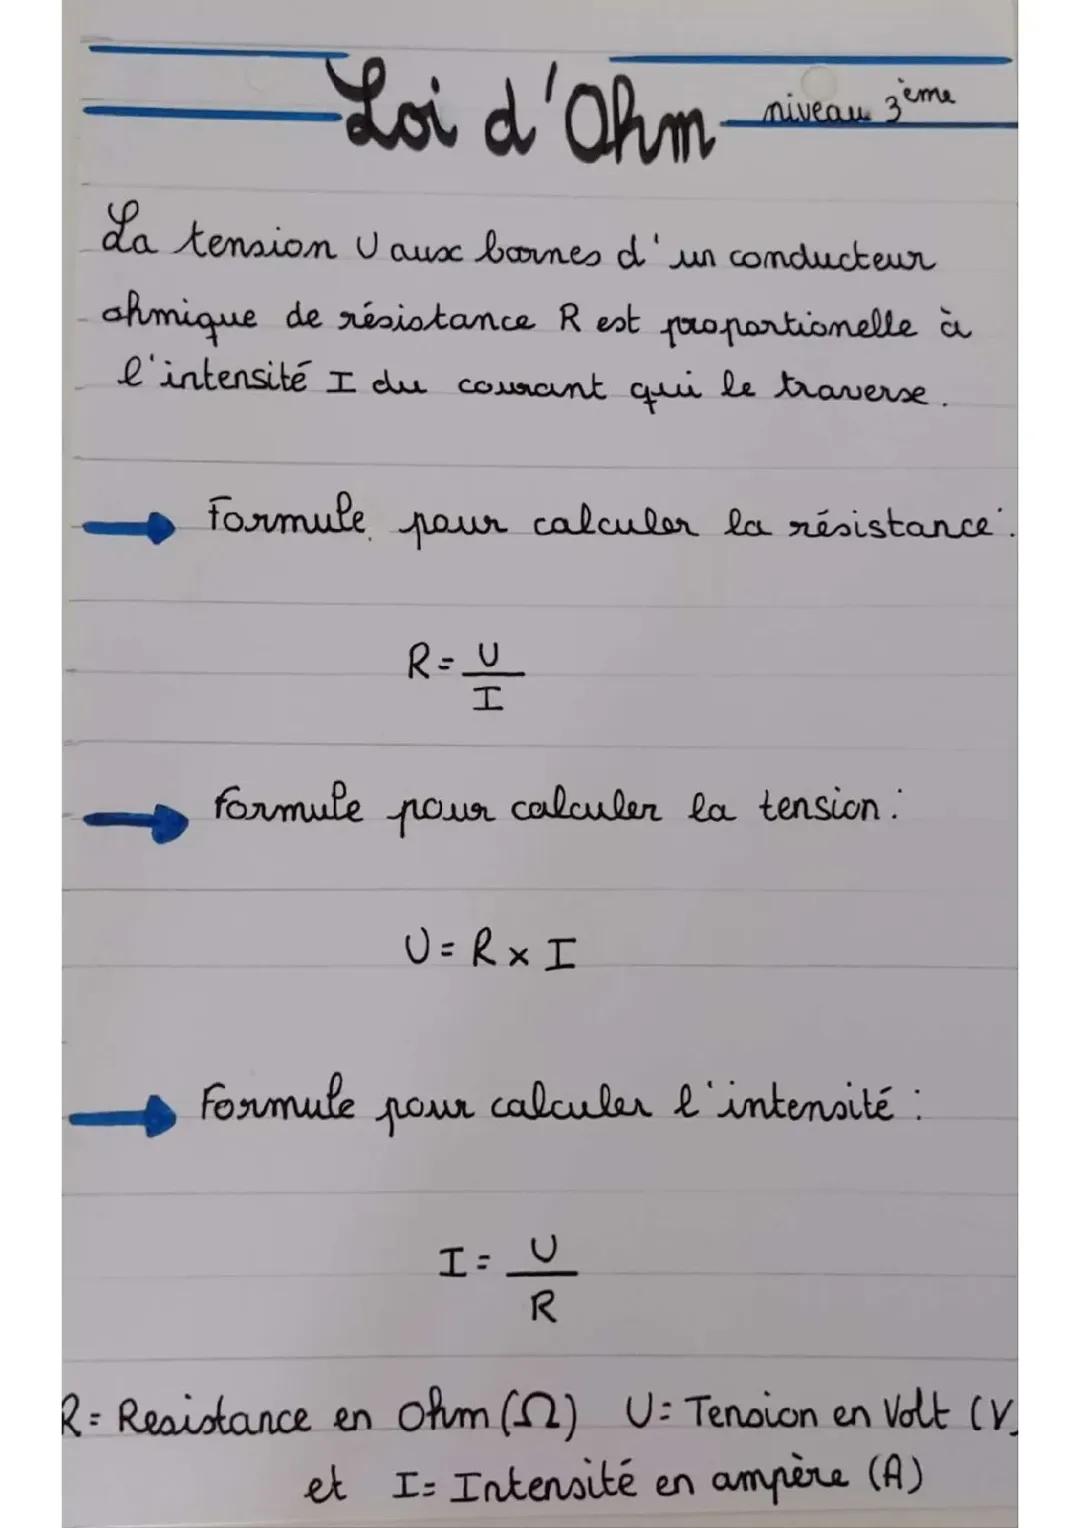 Loi d'Ohm niveau 3ème
La tension U aux bornes d'un conducteur
ohmique de résistance R est proportionelle à
l'intensité I du courant qui le traverse.
Formule pour calculer la résistance:
R = U
I
Formule pour calculer la tension :
U = R x I
Formule pour calculer l'intensité :
I = U
R
R = Resistance en Ohm (Ω) U = Tension en Volt (V)
et I = Intensité en ampère (A)